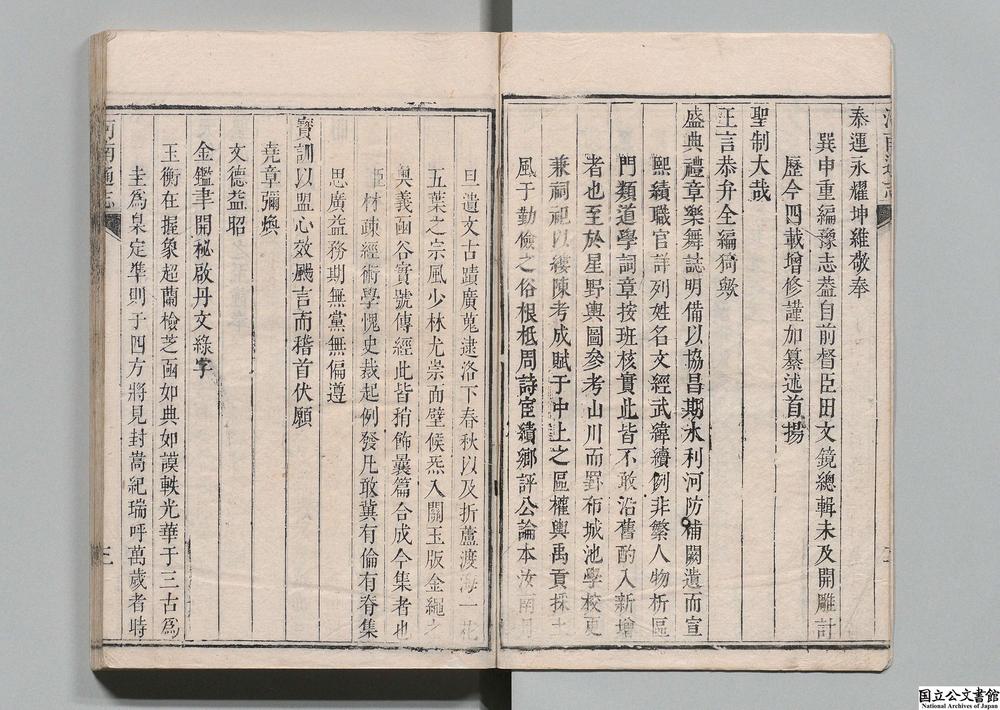 泰運永耀坤維敬奉
巽申重編豫志葢自前督臣田文鏡總輯未及開雕計
歷今四載增修謹加纂述首揚
聖制大哉
王言恭弁全編猗歟
盛典禮章樂舞誌明備以協昌期水利河防補闕遺而宣
熙績職官詳列姓名文經武緯續例非繁人物析區
門類道學詞章按班核實此皆不敢沿舊酌入新增
者也至於星野輿圖參考山川而罫布城池學校更
兼祠祀以縷陳考成賦于中土之區權輿禹貢採土
風于勤儉之俗根柢周詩宦績鄉評公論本汝南月
旦遺文古蹟廣蒐逮洛下春秋以及折蘆渡海一花
五葉之宗風少林尤崇面壁候炁入關玉版金繩之
奧義函谷實號傳經此皆稍飾曩篇合成今集者也
臣材疎經術學愧史裁起例發凡敢冀有倫有脊集
思廣益務期無黨無偏遵
寶訓以盟心效颺言而稽首伏願
堯章彌煥
文德益昭
金鑑聿開秘啟丹文綠字
玉衡在握象超蘭檢芝函如典如謨軼光華于三古為
圭為臬定準則于四方將見封嵩紀瑞呼萬歲者時
河南通志
河南通志
国立公文書館
National Archives of Japan